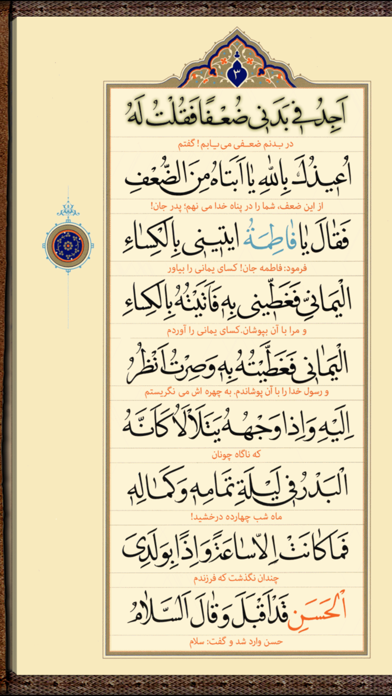 ۳
اَجِدُ فِي بَدَنِي ضُعْفًا فَقُلْتُ لَهُ
در بدنم ضعـفی می‌یـابم! گفتم
اُعِيذُكَ بِاللّٰهِ يَا اَبَتَاهُ مِنَ الضُّعْفِ
از این ضعف، شما را در پناه خدا می نهم؛ پدر جان!
فَقَالَ يَا فَاطِمَةُ ايتِينِي بِالْكِسَاءِ
فرمود: فاطمه جان! کسای یمانی را بیاور
الْيَمَانِيِّ فَغَطِّينِي بِهِ فَاَتَيْتُهُ بِالْكِسَاءِ
و مرا با آن بپوشان.کسای یمانی را آوردم
الْيَمَانِي فَغَطَّيْتُهُ بِهِ وَصِرْتُ اَنْظُرُ
و رسول خدا را با آن پوشاندم. به چهره اش می نگریستم
اِلَيْهِ وَاِذَا وَجْهُهُ يَتَلَأْلَأُ كَاَنَّهُ
که ناگاه چونان
الْبَدْرُ فِي لَيْلَةِ تَمَامِهِ وَكَمَالِهِ
ماه شب چهارده درخشید!
فَمَا كَانَتْ اِلَّا سَاعَةً وَاِذَا بِوَلَدِيَ
چندان نگذشت که فرزندم
الْحَسَنِ قَدْ اَقْبَلَ وَقَالَ السَّلَامُ
حسن وارد شد و گفت: سلام